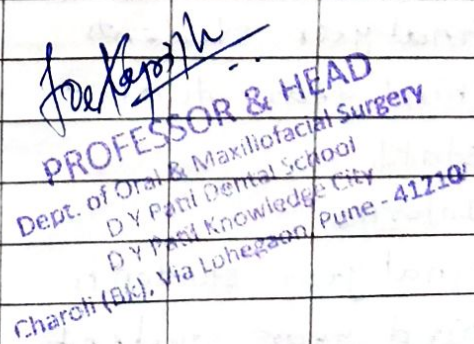 PROFESSOR & HEAD
Dept. of Oral & Maxiliofacial Surgery
D Y Patil Dental School
D Y Patil Knowledge City
Charoli (Bk), Via Lohegaon, Pune -